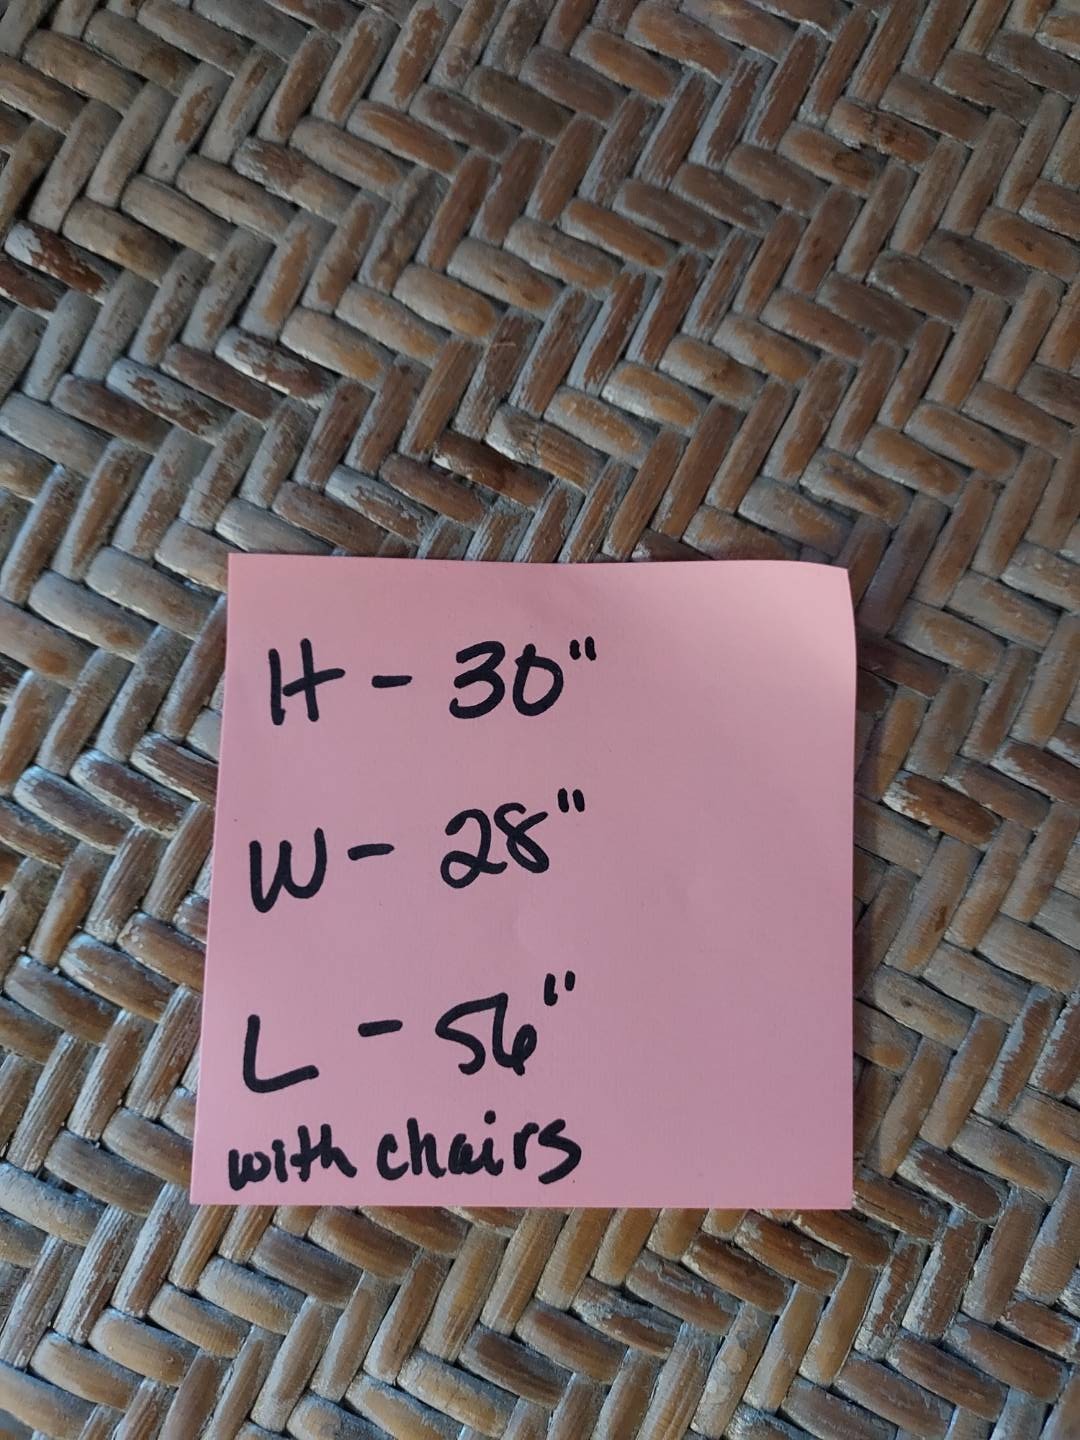 H - 30"
W - 28"
L - 56"
with chairs